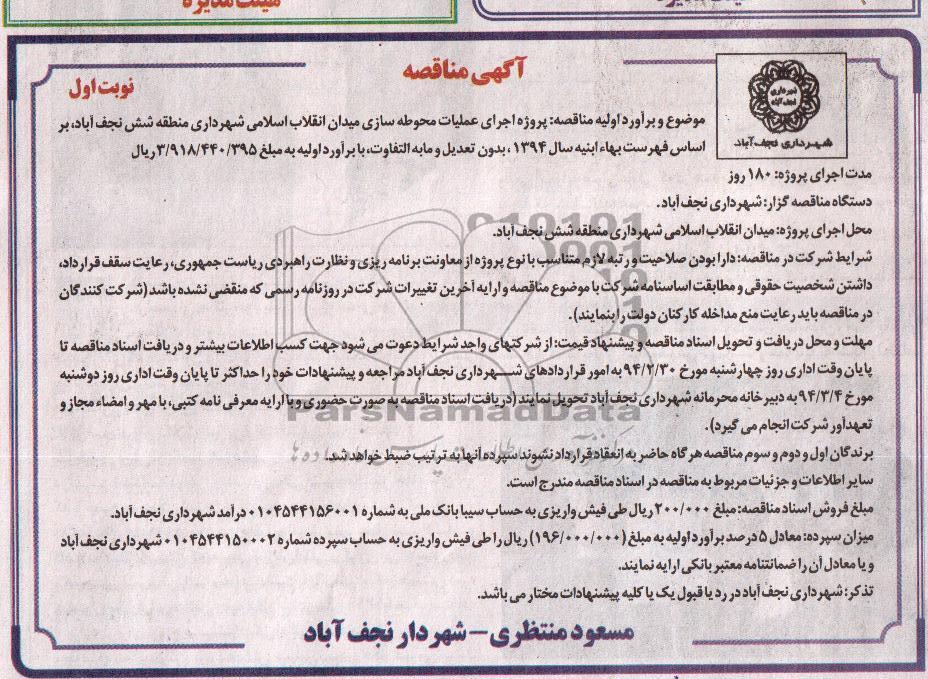 هیئت مدیره
آگهی مناقصه
نوبت اول
شهرداری نجف آباد
شهرداری نجف آباد
موضوع و برآورد اولیه مناقصه: پروژه اجرای عملیات محوطه سازی میدان انقلاب اسلامی شهرداری منطقه شش نجف آباد، بر
اساس فهرست بهاء ابنیه سال ۱۳۹۴، بدون تعدیل و مابه التفاوت، با برآورد اولیه به مبلغ ۳/۹۱۸/۴۴۰/۳۹۵ ریال
مدت اجرای پروژه: ۱۸۰ روز
دستگاه مناقصه گزار: شهرداری نجف آباد.
محل اجرای پروژه: میدان انقلاب اسلامی شهرداری منطقه شش نجف آباد.
شرایط شرکت در مناقصه: دارا بودن صلاحیت و رتبه لازم متناسب با نوع پروژه از معاونت برنامه ریزی و نظارت راهبردی ریاست جمهوری، رعایت سقف قرارداد،
داشتن شخصیت حقوقی و مطابقت اساسنامه شرکت با موضوع مناقصه و ارایه آخرین تغییرات شرکت در روزنامه رسمی که منقضی نشده باشد (شرکت کنندگان
در مناقصه باید رعایت منع مداخله کارکنان دولت را بنمایند).
مهلت و محل دریافت و تحویل اسناد مناقصه و پیشنهاد قیمت: از شرکتهای واجد شرایط دعوت می شود جهت کسب اطلاعات بیشتر و دریافت اسناد مناقصه تا
پایان وقت اداری روز چهارشنبه مورخ ۹۴/۲/۳۰ به امور قراردادهای شهرداری نجف آباد مراجعه و پیشنهادات خود را حداکثر تا پایان وقت اداری روز دوشنبه
مورخ ۹۴/۳/۴ به دبیرخانه محرمانه شهرداری نجف آباد تحویل نمایند (دریافت اسناد مناقصه به صورت حضوری و با ارایه معرفی نامه کتبی، با مهر و امضاء مجاز و
تعهدآور شرکت انجام می گیرد).
برندگان اول و دوم و سوم مناقصه هر گاه حاضر به انعقاد قرارداد نشوند سپرده آنها به ترتیب ضبط خواهد شد.
سایر اطلاعات و جزئیات مربوط به مناقصه در اسناد مناقصه مندرج است.
مبلغ فروش اسناد مناقصه: مبلغ ۲۰۰/۰۰۰ ریال طی فیش واریزی به حساب سیبا بانک ملی به شماره ۰۱۰۴۵۴۴۱۵۶۰۰۱ درآمد شهرداری نجف آباد.
میزان سپرده: معادل ۵ درصد برآورد اولیه به مبلغ (۱۹۶/۰۰۰/۰۰۰) ریال را طی فیش واریزی به حساب سپرده شماره ۰۱۰۴۵۴۴۱۵۰۰۰۲ شهرداری نجف آباد
و یا معادل آن را ضمانتنامه معتبر بانکی ارایه نمایند.
تذکر: شهرداری نجف آباد در رد یا قبول یک یا کلیه پیشنهادات مختار می باشد.
مسعود منتظری - شهردار نجف آباد
ParsNamadData